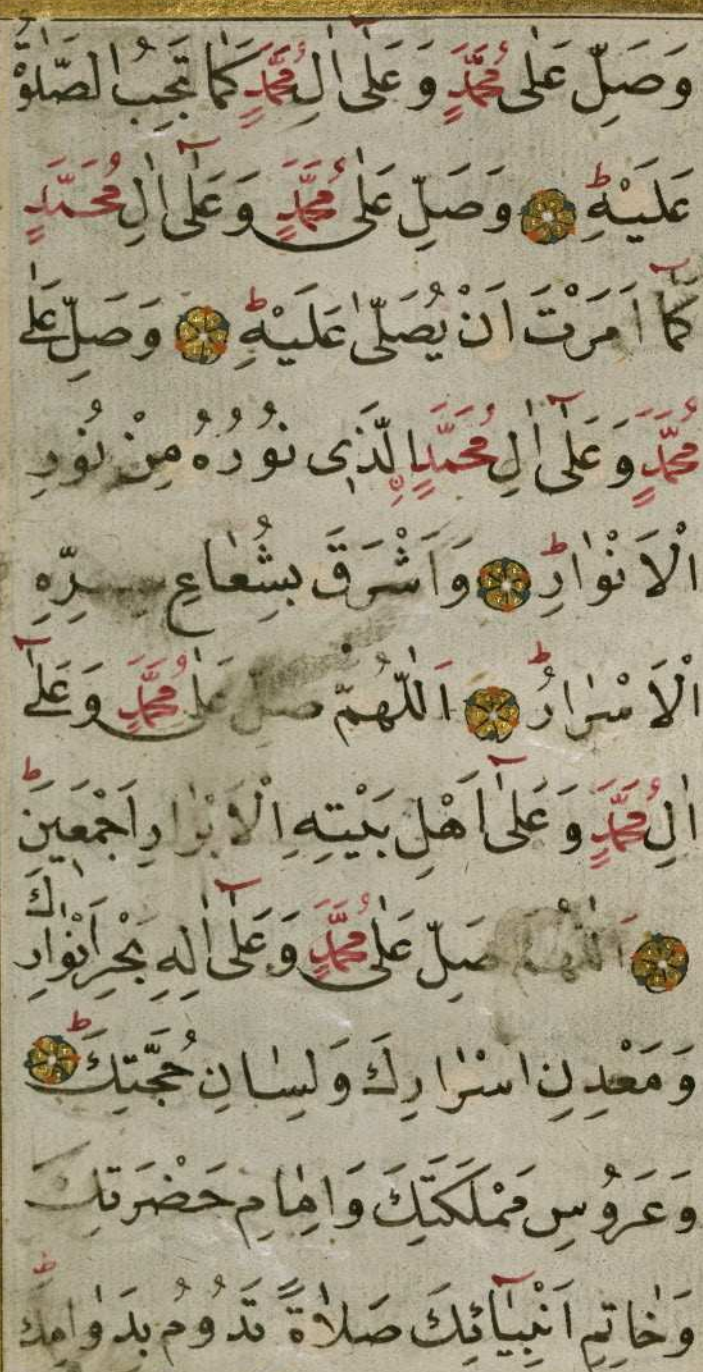 وَصَلِّ عَلٰى مُحَمَّدٍ وَعَلٰٓى اٰلِ مُحَمَّدٍ كَمٰا تَجِبُ الصَّلٰوةُ
عَلَيْهِ ط وَصَلِّ عَلٰى مُحَمَّدٍ وَعَلٰٓى اٰلِ مُحَمَّدٍ
كَمٰٓا اَمَرْتَ اَنْ يُصَلّٰى عَلَيْهِ ط وَصَلِّ عَلٰى
مُحَمَّدٍ وَعَلٰٓى اٰلِ مُحَمَّدٍ الَّذٖى نُوْرُهُ مِنْ نُوْرِ
الْاَنْوٰارِ ط وَاَشْرَقَ بِشُعٰاعِ سِرِّهِ
الْاَسْرٰارُ ط اَللّٰهُمَّ صَلِّ عَلٰى مُحَمَّدٍ وَعَلٰٓى
اٰلِ مُحَمَّدٍ وَعَلٰٓى اَهْلِ بَيْتِهِ الْاَبْرٰارِ اَجْمَعٖينَ ط
اَللّٰهُمَّ صَلِّ عَلٰى مُحَمَّدٍ وَعَلٰٓى اٰلِهِ بَحْرِ اَنْوٰارِكَ
وَمَعْدِنِ اَسْرٰارِكَ وَلِسٰانِ حُجَّتِكَ ط
وَعَرُوْسِ مَمْلَكَتِكَ وَاِمٰامِ حَضْرَتِكَ
وَخٰاتِمِ اَنْبِيَٓائِكَ صَلاٰةً تَدُوْمُ بِدَوٰامِكَ ط